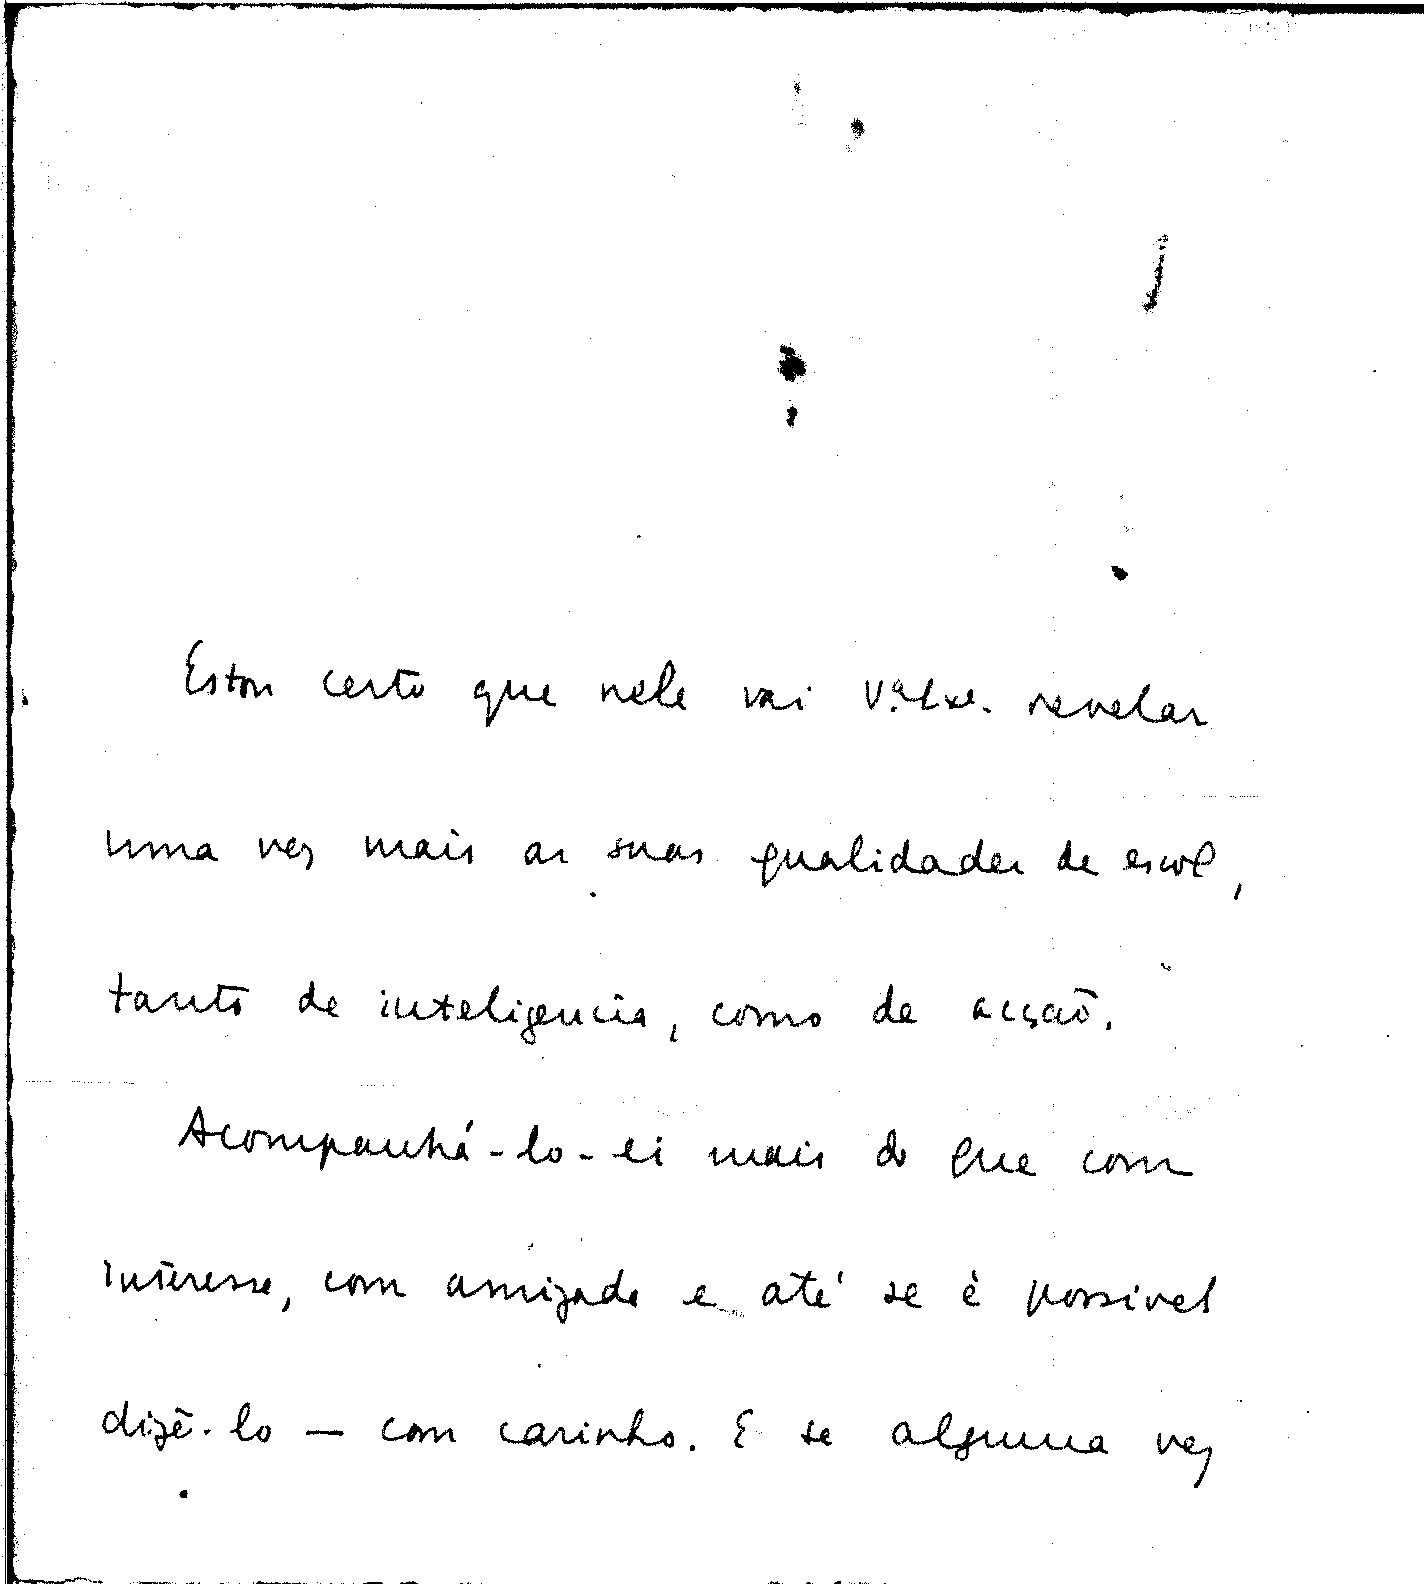 Estou certo que nele vai V.ª Exª. revelar
uma vez mais as suas qualidades de escol,
tanto de inteligencia, como de acção.
Acompanhá-lo-ei mais do que com
interesse, com amizade e até se é possivel
dizê-lo — com carinho. E se alguma vez